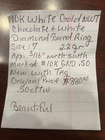 10K White Gold NWT
Chocolate & White
Diamond Barrel Ring
Size: 7 2.29 gm
Approx 3/16" north-south
Marked 10K SAD 50
New with Tag
Original Price $880.00
.50 cttw
Beautiful